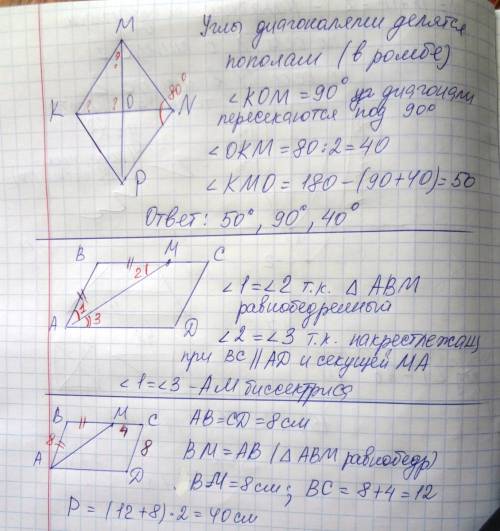 M
Углы диагоналями делятся
пополам (в ромбе)
? 80°
K ? ? O N
∠KOM = 90° диагонали
пересекаются под 90°
∠OKM = 80:2=40
P
∠KMO = 180-(90+40)=50
Ответ: 50°, 90°, 40°
B M C
2
1 3
A D
∠1=∠2 т.к. △ ABM
равнобедренный
∠2=∠3 т.к. накрестлежащ
при BC || AD и секущей MA
∠1=∠3 - AM биссектриса
B M C
4
8 8
A D
AB=CD=8см
BM=AB (△ABM равнобедр)
BM=8см; BC=8+4=12
P=(12+8)·2=40см